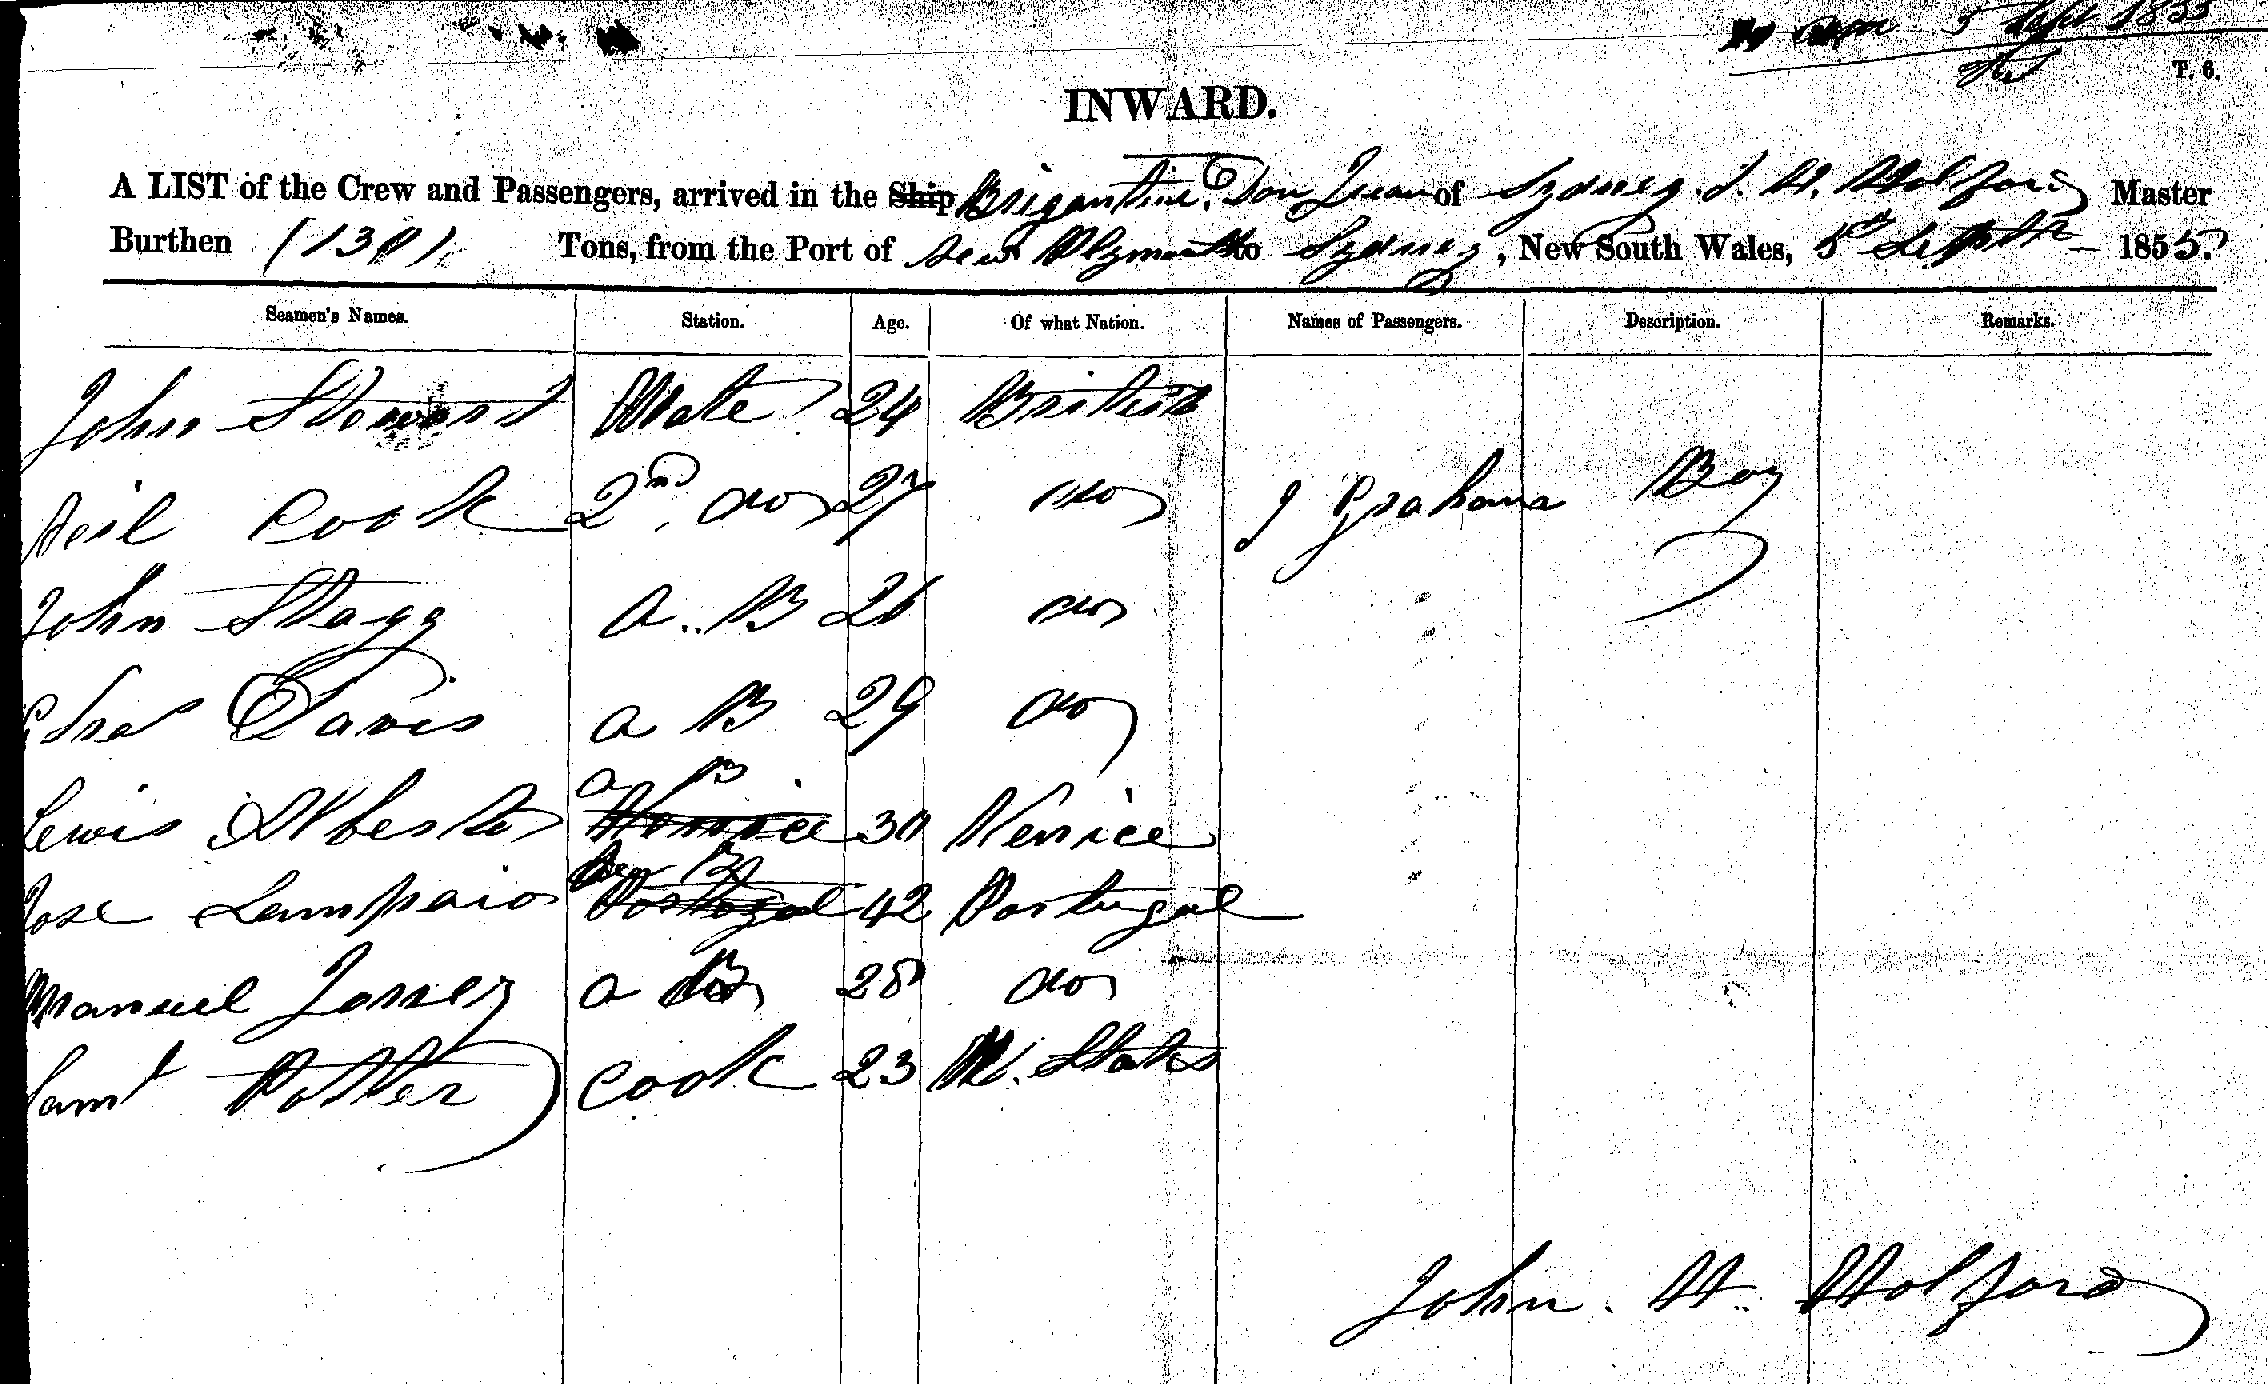 5 Sept 1855
T. 6.
INWARD.
A LIST of the Crew and Passengers, arrived in the Ship Brigantine Don Juan of Sydney J. H. Holford Master
Burthen (130) Tons, from the Port of New Plymouth to Sydney, New South Wales, 5th Septr 1855.
Seamen's Names. Station. Age. Of what Nation. Names of Passengers. Description. Remarks.
John Steward Mate 24 British
Neil Cook 2nd do 27 do J Graham Boy
John Stagg A. B 26 do
Davis A B 29 do
A B
Lewis Alberto Venice 30 Venice
B
Jose Sampaio Portugal 42 Portugal
Manuel A B 28 do
Saml Potter Cook 23 U. States
John. H. Holford